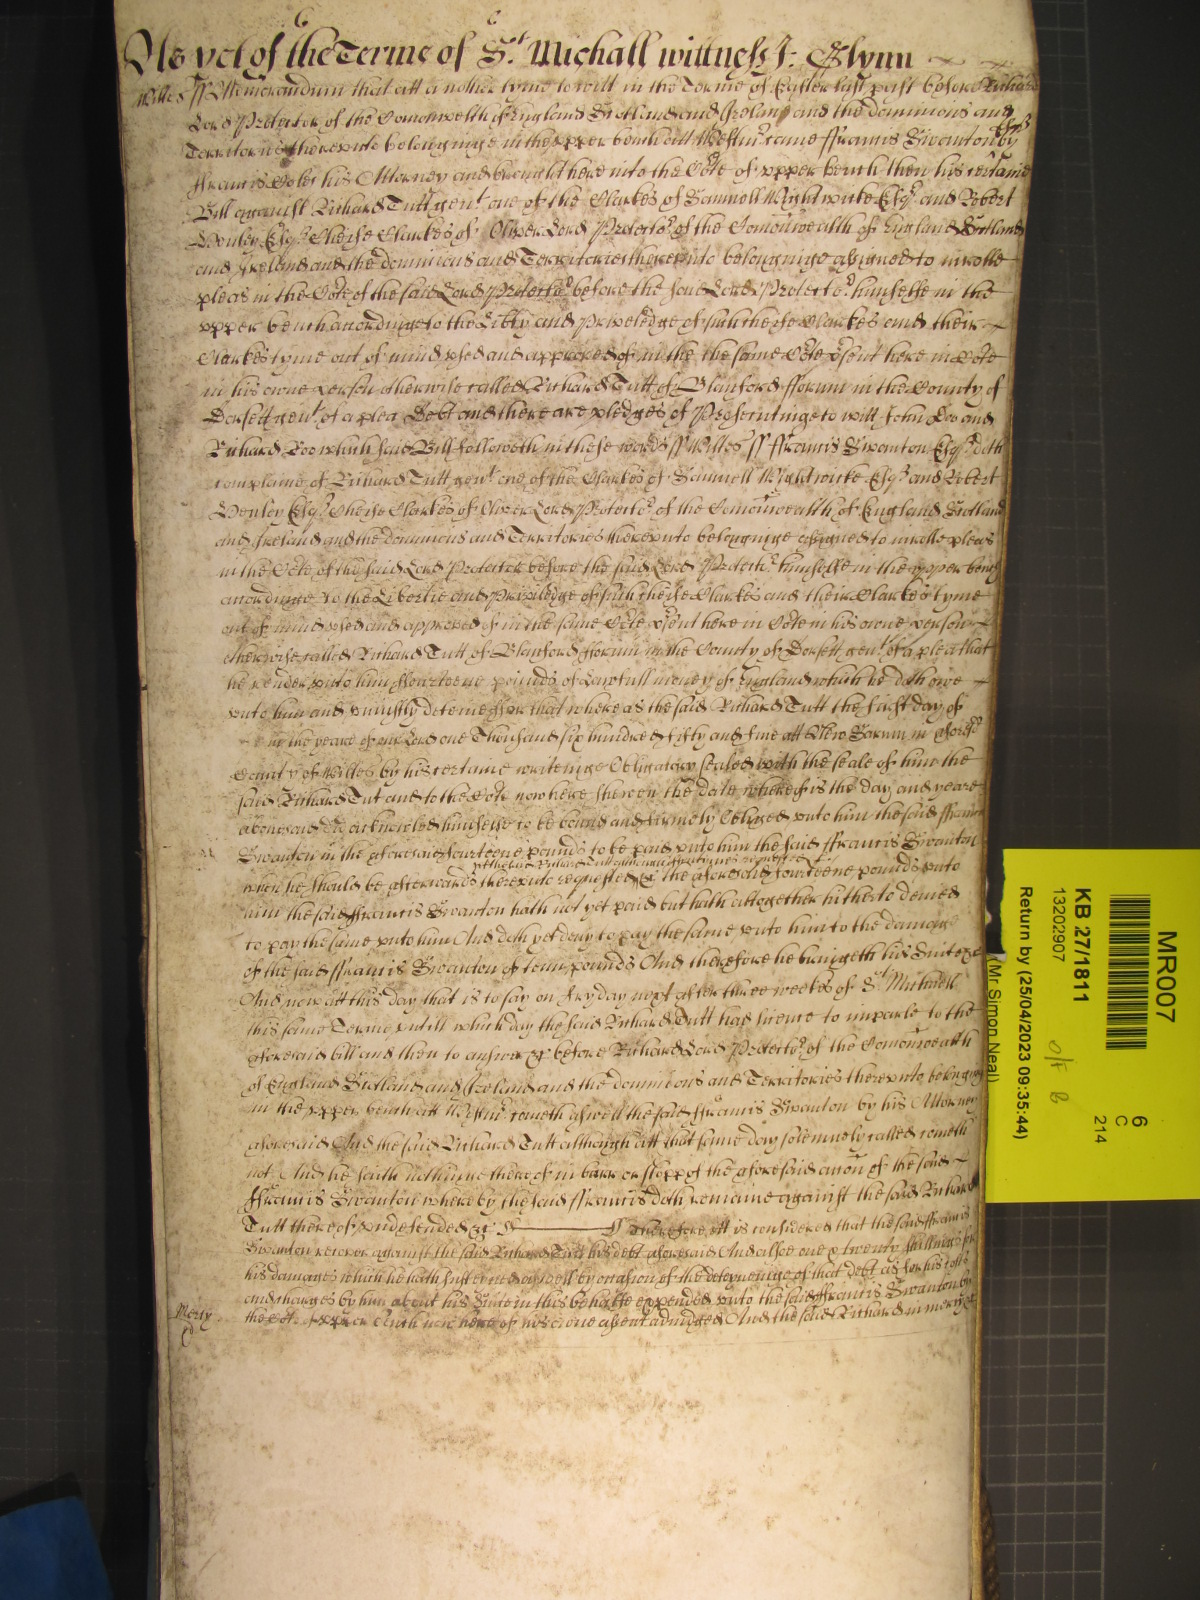 As yet of the Terme of St Michall wittnesse J: Glynn
Wiltes ss Memorandum that att a nother tyme to witt in the Terme of Easter last past before Richard
Lord Protector of the Comonwelth of England Scotland and Ireland and the dominions and
Territories thereunto belonginge in the upper bench att Westmr came ffrancis Swanton by
ffrancis Coles his Attorney and brought here into the Cort of upper bench then his certaine
Bill against Richard Tutt gent one of the Clarkes of Samuell Wightwicke Esqr and Robert
Henley Esqr Cheife Clarkes of Oliver Lord Protector of the Comonwealth of England Scotland
and Ireland and the dominions and Territories thereunto belonginge assigned to inrolle
pleas in the Cort of the said Lord Protector before the said Lord Protector himselfe in the
upper bench accordinge to the Libty and Priveledge of such cheife Clarkes and their
Clarkes tyme out of mind used and approved of in the the same Cort psent here in Cort
in his owne person otherwise called Richard Tutt of Blanford fforum in the County of
Dorsett gent of a plea Debt and there are pledges of Prosecutinge to witt John Doo and
Richard Roo which said Bill followeth in these words ss Wiltes ss ffrancis Swanton Esqr doth
complaine of Richard Tutt gent one of the Clarkes of Samuell Wightwicke Esqr and Robert
Henley Esqr Cheife Clarkes of Oliver Lord Protector of the Comonwealth of England Scotland
and Ireland and the dominions and Territories thereunto belonginge assigned to inrolle pleas
in the Cort of the said Lord Protector before the said Lord Protector himselfe in the upper bench
accordinge to the Libertie and Priviledge of such cheife Clarkes and their Clarkes tyme
out of mind used and approved of in the same Cort psent here in Cort in his owne person
otherwise called Richard Tutt of Blanford fforum in the County of Dorsett gent of a plea that
he render unto him fourteene pounds of Lawfull money of England which he doth owe
unto him and uniustly deteine ffor that where as the said Richard Tutt the first day of
in the yeare of our Lord one Thousand six hundred fifty and five att New Sarum in aforesd
County of Wiltes by his certaine writeinge Obligatory sealed with the seale of him the
said Richard Tut and to the Cort now here shewen the date whereof is the day and yeare
abovesaid did acknowled himselfe to be bound and firmely Obliged unto him the said ffrancis
Swanton in the aforesaid fourteene pounds to be paid unto him the said ffrancis Swanton
when he should be afterwards thereunto requested yet the said Richard Tutt although oftentymes requested the aforesaid fourteene pounds unto
him the said ffrancis Swanton hath not yet paid but hath altogether hitherto denied
to pay the same unto him And doth yet deny to pay the same unto him to the damage
of the said ffrancis Swanton of tenn pounds And therefore he bringeth his Suite &c
And now att this day that is to say on fryday next after three weekes of St Michaell
this same Terme untill which day the said Richard Tutt had licence to imparle to the
aforesaid bill and then to answer &c before Richard Lord Protector of the Comonwealth
of England Scotland and Ireland and the dominions and Territories thereunto belonging
in the upper bench att Westmr cometh aswell the said ffrancis Swanton by his Attorney
aforesaid And the said Richard Tutt although att that same day solemnely called cometh
not And he saith nothinge thereof in barr or stopp of the aforesaid accon of the said
ffrancis Swanton whereby the said ffrancis doth remaine against the said Richard
Tutt thereof undefended &c Therefore itt is considered that the said ffrancis
Swanton recover against the said Richard Tutt his debt aforesaid And allsoe one & twenty shillings for
his damages which he hath susteined aswell by occasion of the deteyneinge of that debt as for his costs
and charges by him about his Suite in this behalfe expended unto the said ffrancis Swanton by
the Cort of upper bench now here of his owne assent adiudged And the said Richard in mercy &c
Mercy
MR007
KB 27/1811
13202907
6
C
214
Return by (25/04/2023 09:35:44)
(Mr Simon Neal)